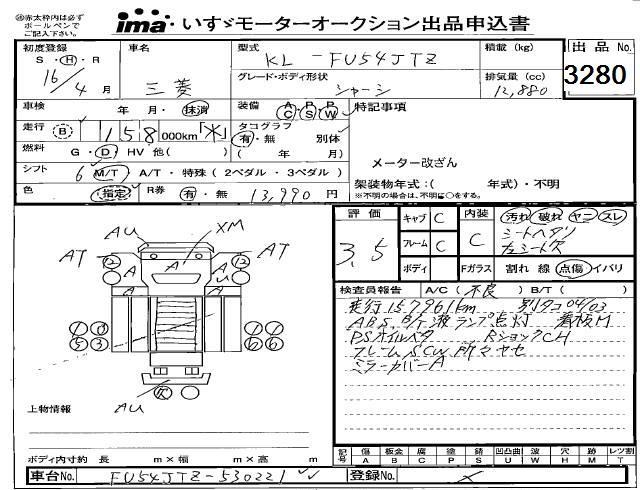 ㊟赤太枠内は必ず
ボールペンで
ご記入下さい。
ima いすゞモーターオークション出品申込書
初度登録 車名 型式 KL-FU54JTZ 積載(kg) 出品No.
S・H・R 16/4月 三菱 グレード・ボディ形状 シャーシ 排気量(cc) 12,880 3280
車検 年 月・抹消 装備 A C P S P W 特記事項
走行 B 158 000km「✕」 タコグラフ 有・無 別体
燃料 G・D・HV 他( ) ( 年 月) メーター改ざん
シフト 6 M/T・A/T・特殊(2ペダル・3ペダル) 架装物年式:( 年式)・不明
色 指定 R券 有・無 13,990 円 ※不明の場合は、不明に○をする。
評価 3.5 キャブ C 内装 C 汚れ 破れ ヤニ スレ
フレーム C シートヘタリ
左シート穴
ボディ Fガラス 割れ 線 点傷 イバリ
AU XM
AT 12 A A A AU 12 AT
1 1 1 1
5 3 6 6
穴
AU
検査員報告 A/C(不良) B/T( )
走行157961km 別タコ04/03
ABS、タイヤ液ランプ点灯 看板M
PSオイルベタ RショックCH
フレームSCW 所々ヤセ
ミラーカバーA
上物情報
ボディ内寸約 長 m×幅 m×高 m
記号 傷A 板金B 腐C 塗P 錆S 凹凸曲U 波W 穴H 跡M レツ割T
車台No. FU54JTZ-530221 登録No. ✕